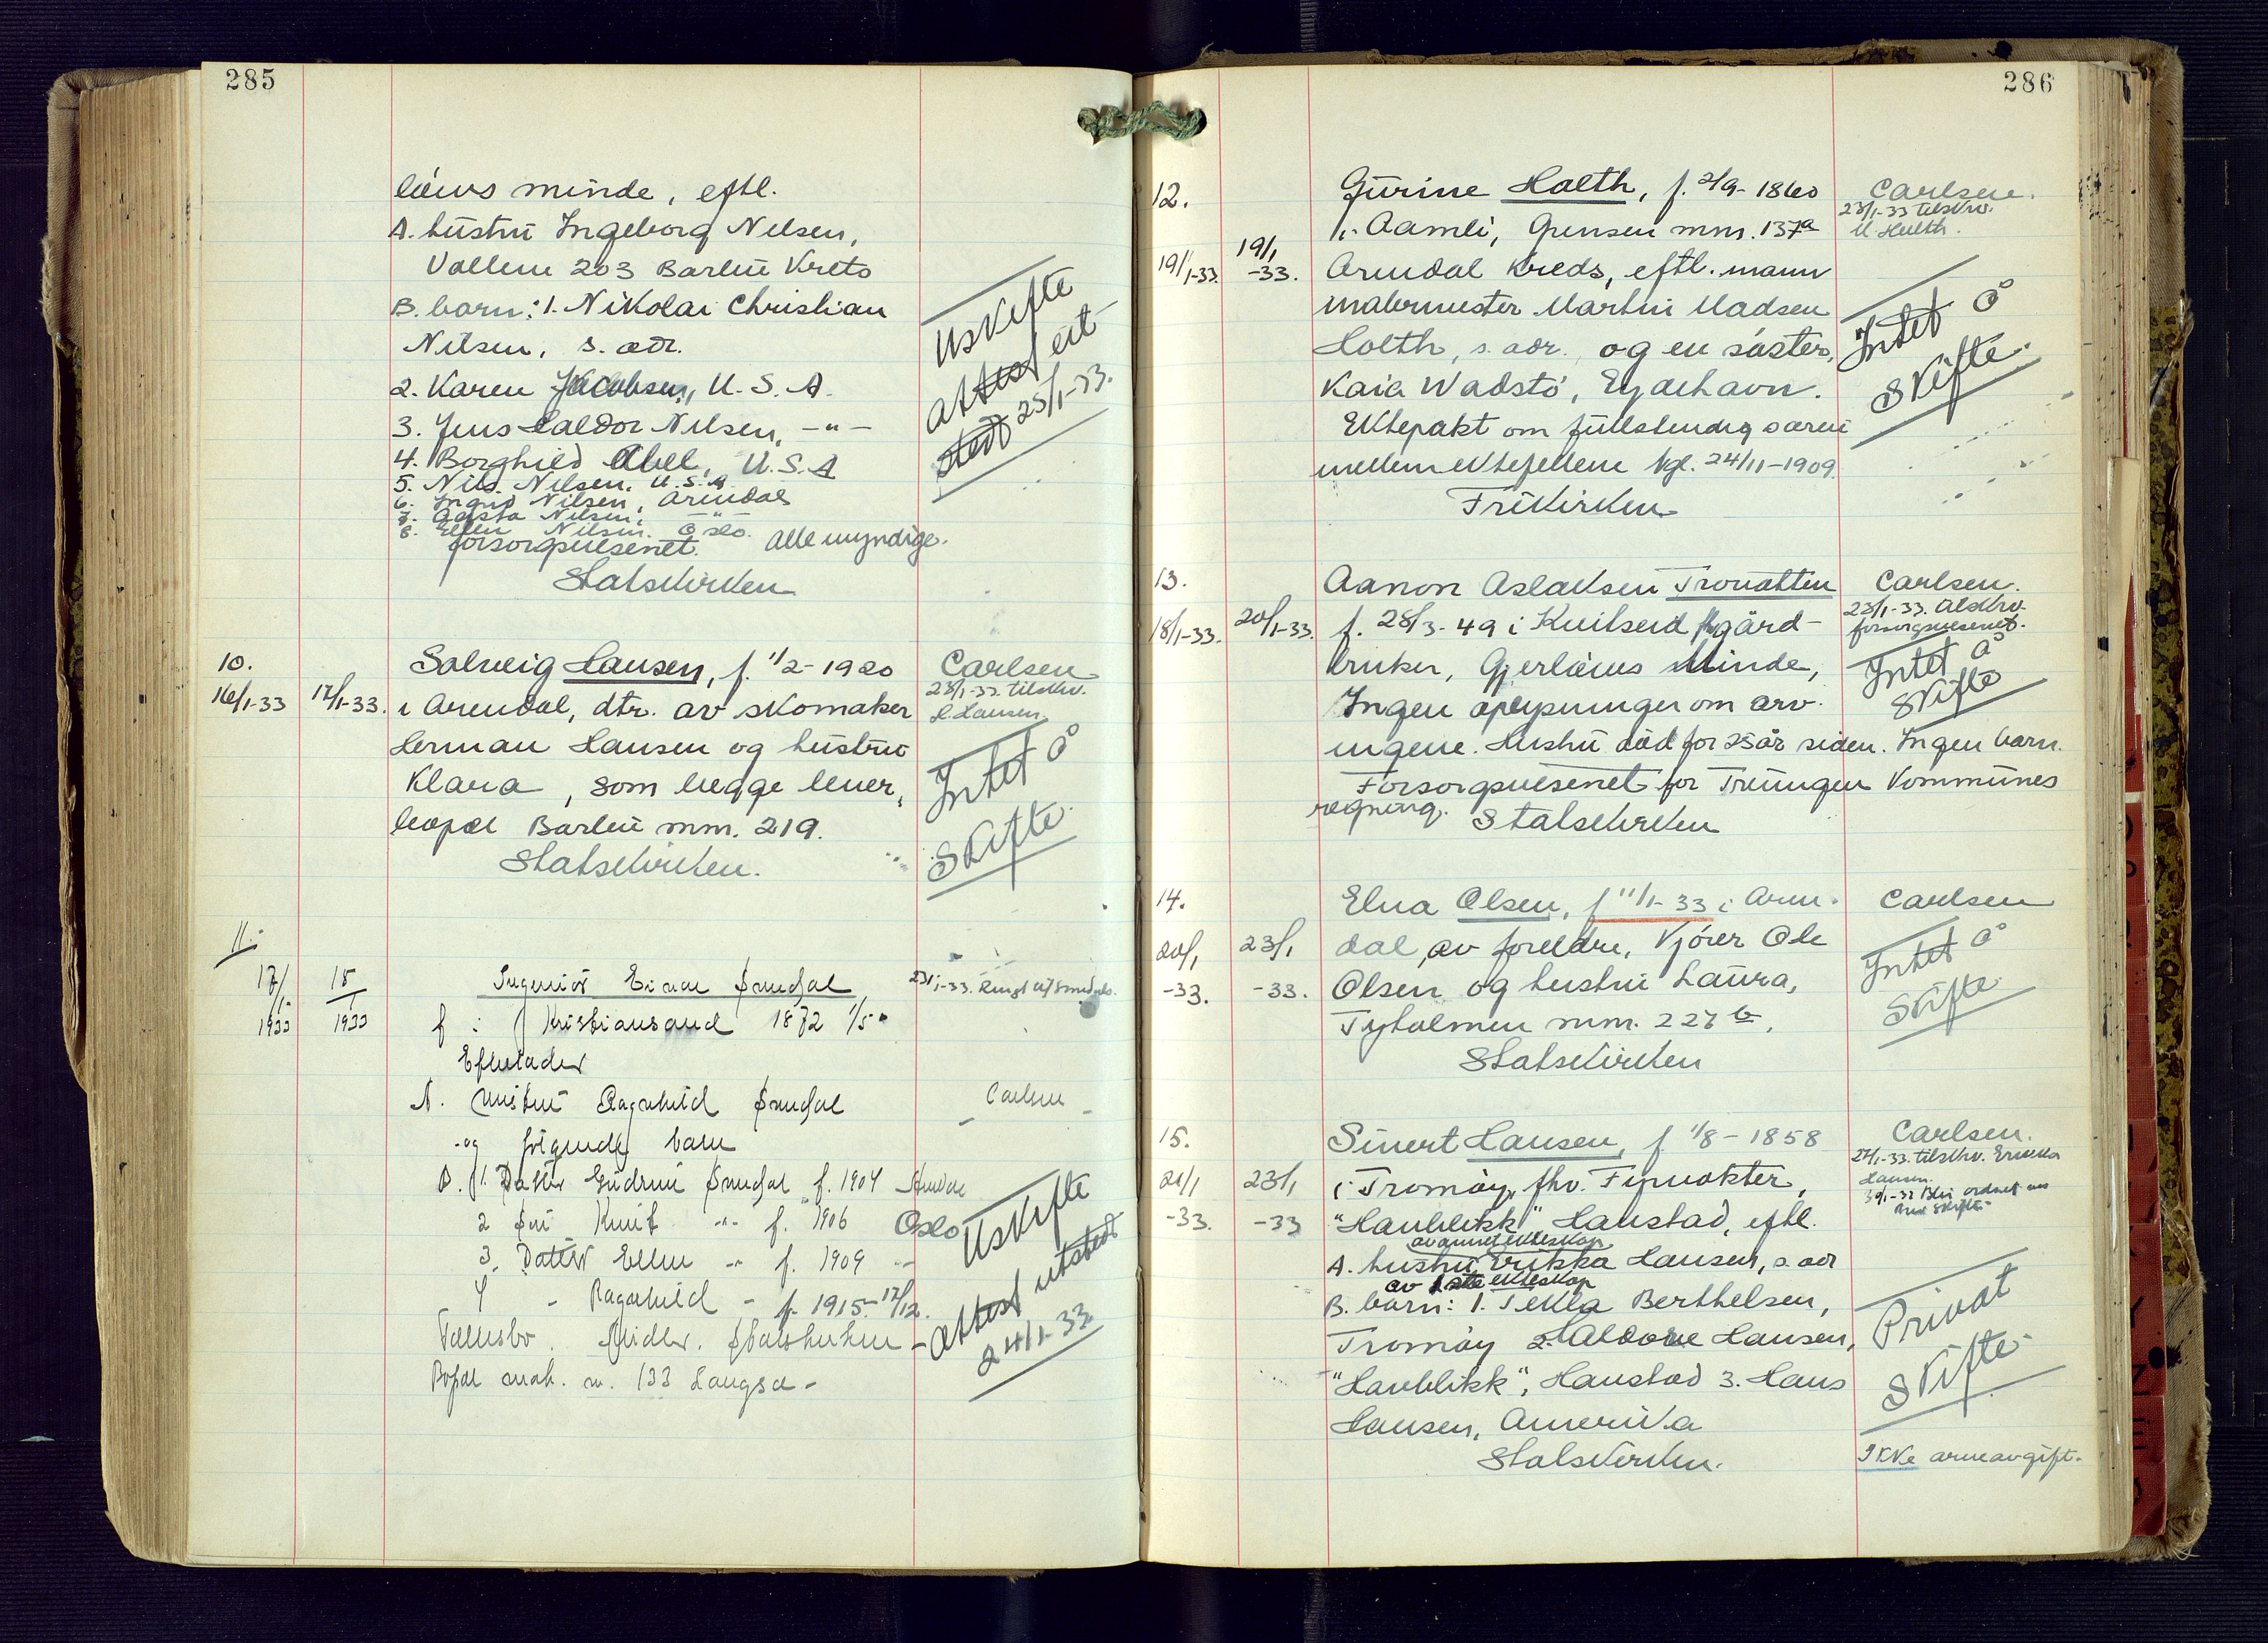 285
løws minde, eftl.
A. hustru Ingeborg Nilsen,
Vollene 203 Barbu Krets
B. barn: 1. Nikolai Christian
Nilsen, s. adr.
2. Karen Jacobsen, U.S.A.
3. Jens Haldor Nilsen, -"-
4. Borghild Abel, U.S.A
5. Nils Nilsen, U.S.A
6. Ingrid Nilsen, Arendal
7. Agda Nilsen, -"-
8. Ellen Nilsen. Oslo. Alle myndige.
forsorgsvesenet.
Statskirken
Uskifte
attest ut
stedt 25/1-33.
10.
16/1-33 17/1-33.
Solveig Hansen, f. 1/2-1920
i Arendal, dtr. av skomaker
Herman Hansen og hustru
Klara, som begge lever,
bopel Barbu mnr. 219.
Statskirken.
Carlsen
23/1-33. tilskrv.
H. Hansen.
Intet å
Skifte.
11.
17/1 1933
18/1 1933
Ingeniør Einar Smedal
f i Kristiansand 1872 1/5
Efterlader
A. Hustru Ragnhild Smedal
og følgende barn
B. 1. Datter Gudrun Smedal f. 1904 Arendal
2 Søn Knut -"- f. 1906 Oslo
3. Datter Ellen -"- f. 1909 -"-
4 - Ragnhild - f. 1915-17/12.
Midler. Statskirken -
Bopel matr. nr. 133 Langsæ -
23/1-33. Ringt
Carlsen
Uskifte
attest utstedt
24/1-33
286
12.
19/1-33. 19/1-33.
Gurine Holth, f. 2/9-1860
i Aamli, Grensen mnr. 137a
Arendal Kreds, eftl. mann
malermester Martin Madsen
Holth, s. adr. og en søster,
Kaia Wadstø, Eydehavn.
Ektepakt om fullstendig særeie
mellem ektefellene tgl. 24/11-1909.
Frikirken
Carlsen.
23/1-33 tilskrv.
M. Holth.
Intet å
Skifte.
13.
18/1-33. 20/1-33.
Aanon Aslaksen Trovatten
f. 28/3-49 i Kvitseid, gård-
bruker, Gjerløws Minde,
Ingen oplysninger om arv-
ingene. Hustru død for 25 år siden. Ingen barn.
Forsorgsvesenet for Treungen Kommunes
regning. Statskirken
Carlsen.
23/1-33. tilskrv.
forsorgsvesenet.
Intet å
Skifte
14.
20/1-33. 23/1-33.
Elna Olsen, f 11/1-33 i Aren-
dal, av foreldre, kjører Ole
Olsen og hustru Laura,
Tyholmen mnr. 227 b,
Statskirken
Carlsen
Intet å
Skifte.
15.
21/1-33. 23/1-33
Sivert Hansen, f. 1/8-1858
i Tromøy, fhv. Fyrvokter,
"Havblikk", Havstad, eftl.
av annet ekteskap
A. hustru Erikka Hansen, s. adr
av 1ste ekteskap
B. barn: 1. Tekla Berthelsen,
Tromøy 2. Haldore Hansen,
"Havblikk", Havstad 3. Hans
Hansen, Amerika
Statskirken.
Carlsen.
27/1-33. tilskrv. Erikka
Hansen.
30/1-33 Blir ordnet
Privat
Skifte.
Ikke arveavgift.